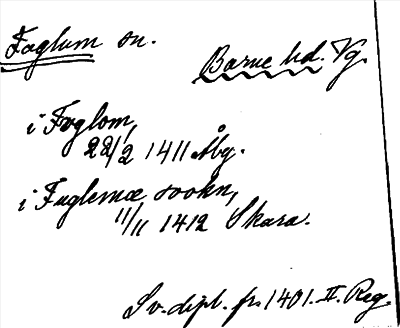 Foglum sn.
Barne hd. Vg.
i Foglom,
22/2 1411 Åby.
i Fuglemæ sookn,
11/11 1412 Skara.
Sv. dipl. fr. 1401. II. Reg.